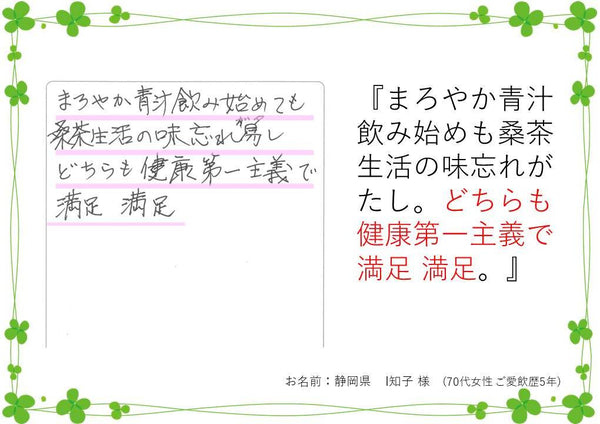 まろやか青汁飲み始めても
桑茶生活の味忘れがたし
どちらも健康第一主義で
満足 満足
『まろやか青汁
飲み始めも桑茶
生活の味忘れが
たし。どちらも
健康第一主義で
満足 満足。』
お名前：静岡県　I知子 様　(70代女性 ご愛飲歴5年)